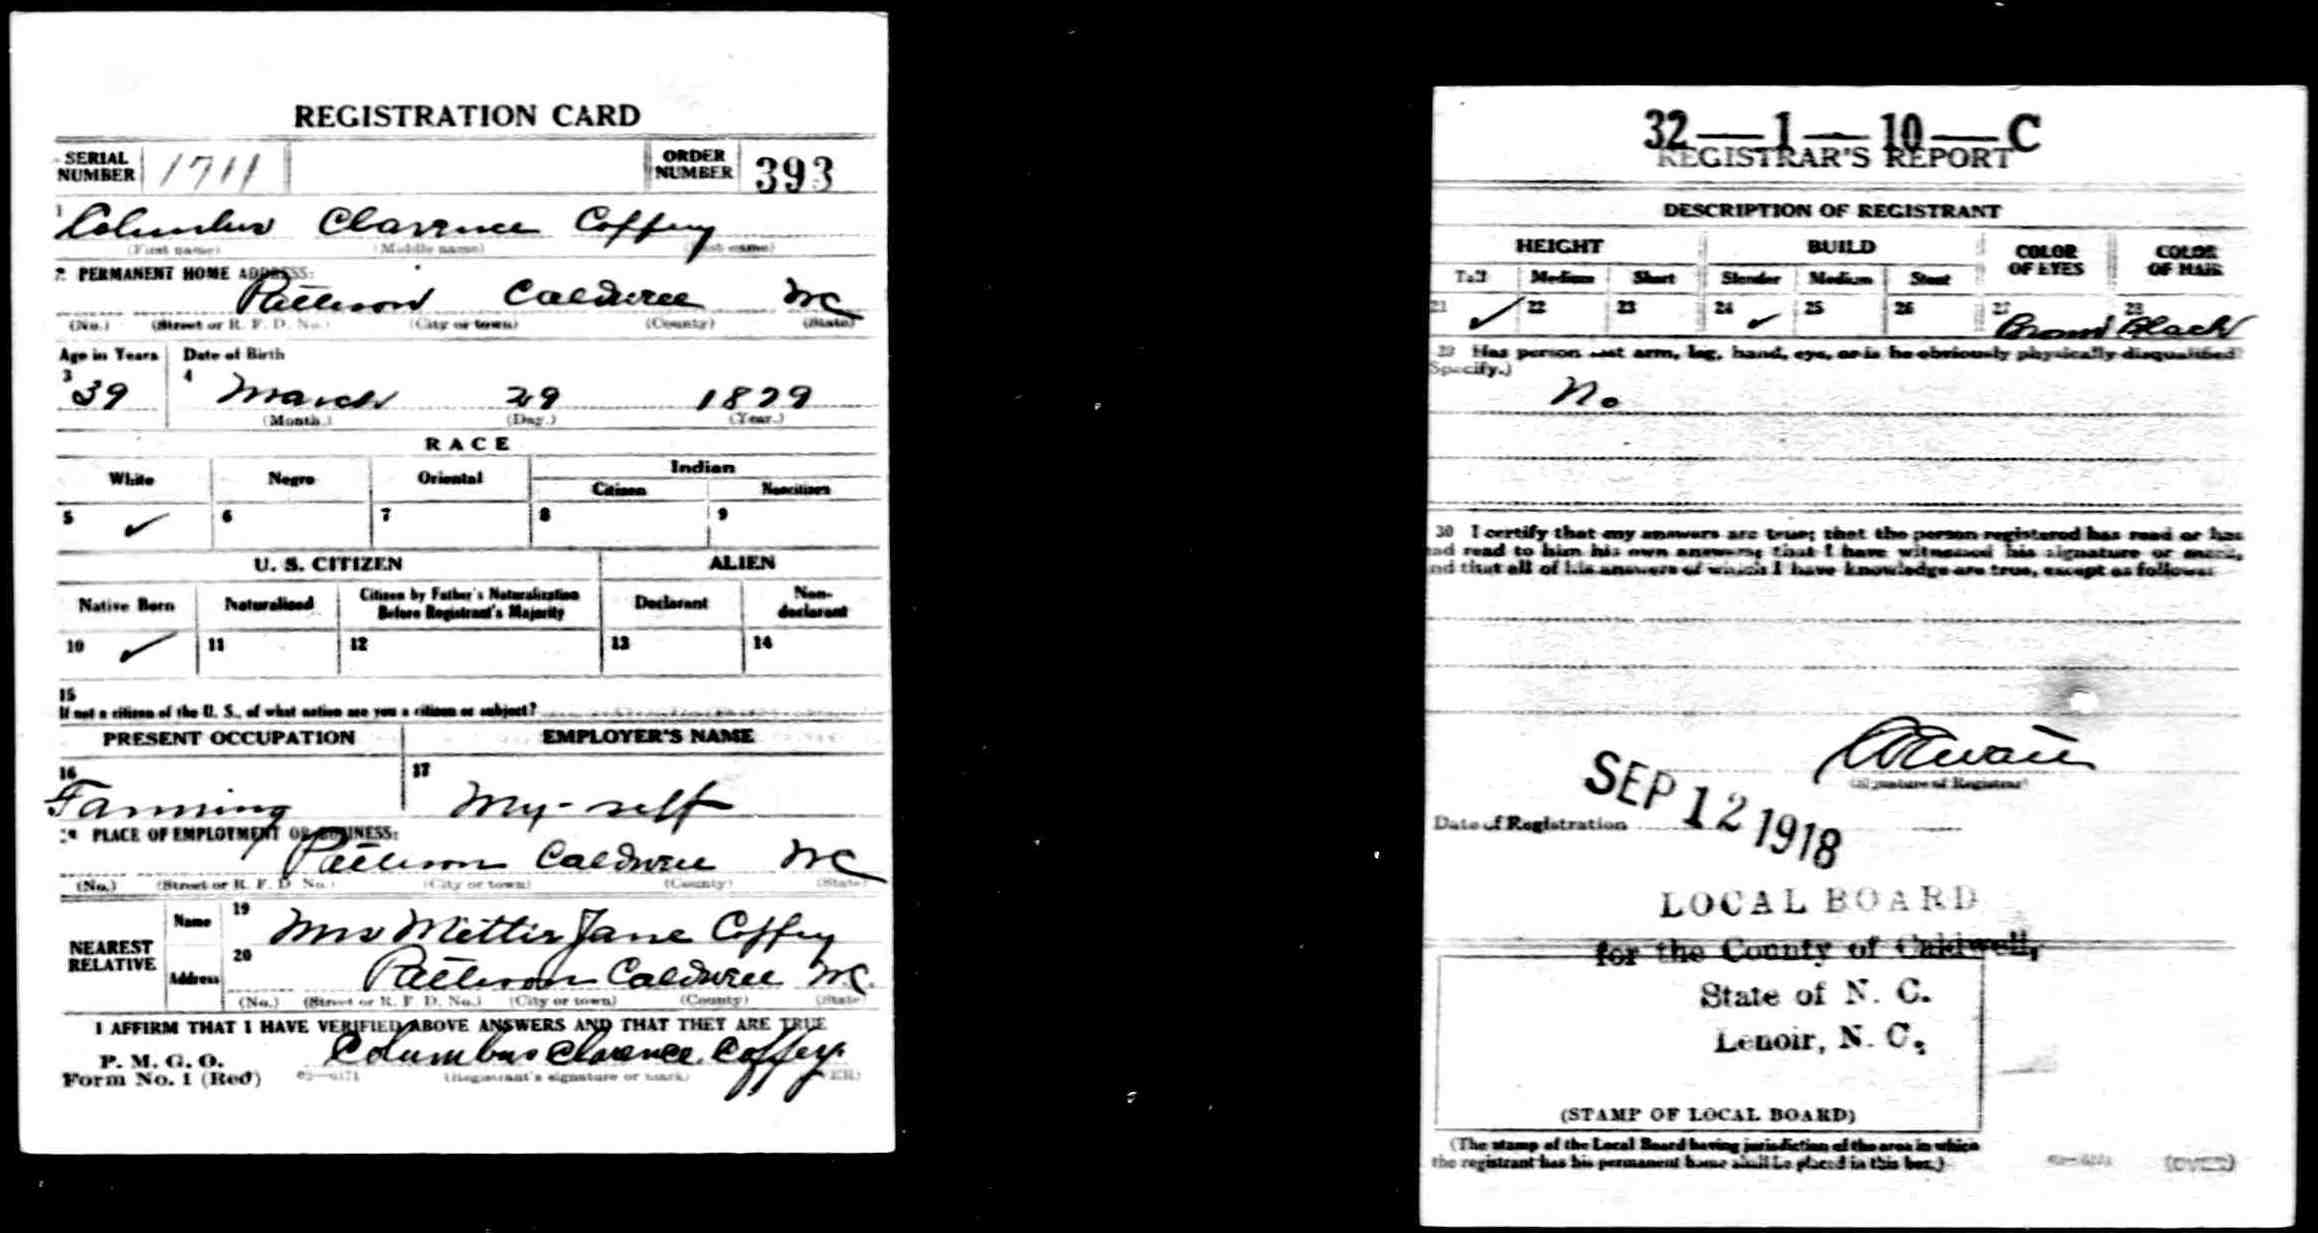 REGISTRATION CARD
SERIAL NUMBER 1711 ORDER NUMBER 393
1 Columbus Clarence Coffey
(First name) (Middle name) (Last name)
2 PERMANENT HOME ADDRESS:
Patterson Caldwell NC
(No.) (Street or R. F. D. No.) (City or town) (County) (State)
Age in Years Date of Birth
3 39 4 March 29 1879
(Month.) (Day.) (Year.)
RACE
White Negro Oriental Indian
Citizen Noncitizen
5 ✓ 6 7 8 9
U. S. CITIZEN ALIEN
Native Born Naturalized Citizen by Father's Naturalization Before Registrant's Majority Declarant Non-declarant
10 ✓ 11 12 13 14
15
If not a citizen of the U. S., of what nation are you a citizen or subject?
PRESENT OCCUPATION EMPLOYER'S NAME
16 Farming 17 My-self
18 PLACE OF EMPLOYMENT OR BUSINESS:
Patterson Caldwell NC
(No.) (Street or R. F. D. No.) (City or town) (County) (State)
NEAREST RELATIVE
Name 19 Mrs Mittie Jane Coffey
Address 20 Patterson Caldwell NC.
(No.) (Street or R. F. D. No.) (City or town) (County) (State)
I AFFIRM THAT I HAVE VERIFIED ABOVE ANSWERS AND THAT THEY ARE TRUE
P. M. G. O.
Form No. 1 (Red) Columbus Clarence. Coffey.
(Registrant's signature or mark) (OVER)
32—1—10—C
REGISTRAR'S REPORT
DESCRIPTION OF REGISTRANT
HEIGHT BUILD COLOR OF EYES COLOR OF HAIR
Tall Medium Short Slender Medium Stout
21 ✓ 22 23 24 ✓ 25 26 27 Brown 28 Black
29 Has person lost arm, leg, hand, eye, or is he obviously physically disqualified?
(Specify.)
No
30 I certify that my answers are true; that the person registered has read or has
had read to him his own answers; that I have witnessed his signature or mark,
and that all of his answers of which I have knowledge are true, except as follows:
(Signature of Registrar)
Date of Registration SEP 12 1918
LOCAL BOARD
for the County of Caldwell,
State of N. C.
Lenoir, N. C.
(STAMP OF LOCAL BOARD)
(The stamp of the Local Board having jurisdiction of the area in which
the registrant has his permanent home shall be placed in this box.)
(OVER)